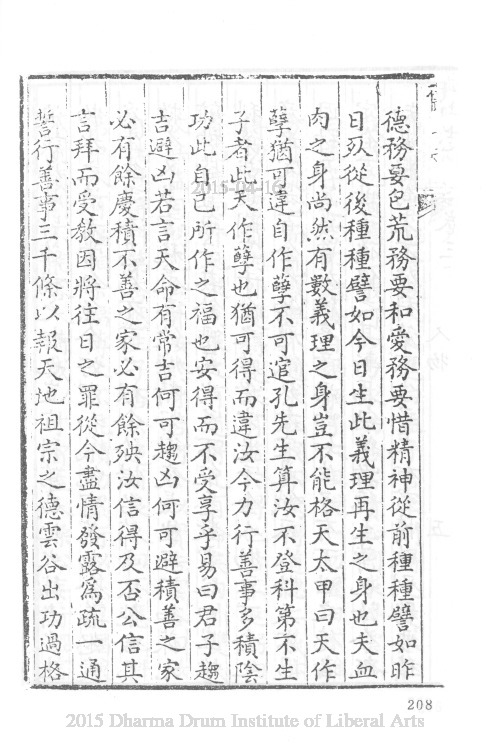 德務要包荒務要和愛務要惜精神從前種種譬如昨
日死從後種種譬如今日生此義理再生之身也夫血
肉之身尚然有數義理之身豈不能格天太甲曰天作
孽猶可違自作孽不可逭孔先生算汝不登科第不生
子者此天作孽也猶可得而違汝今力行善事多積陰
功此自己所作之福也安得而不受享乎易曰君子趨
吉避凶若言天命有常吉何可趨凶何可避積善之家
必有餘慶積不善之家必有餘殃汝信得及否公信其
言拜而受教因將往日之罪從今盡情發露為疏一通
誓行善事三千條以報天地祖宗之德雲谷出功過格
2015-04-16
208
2015 Dharma Drum Institute of Liberal Arts